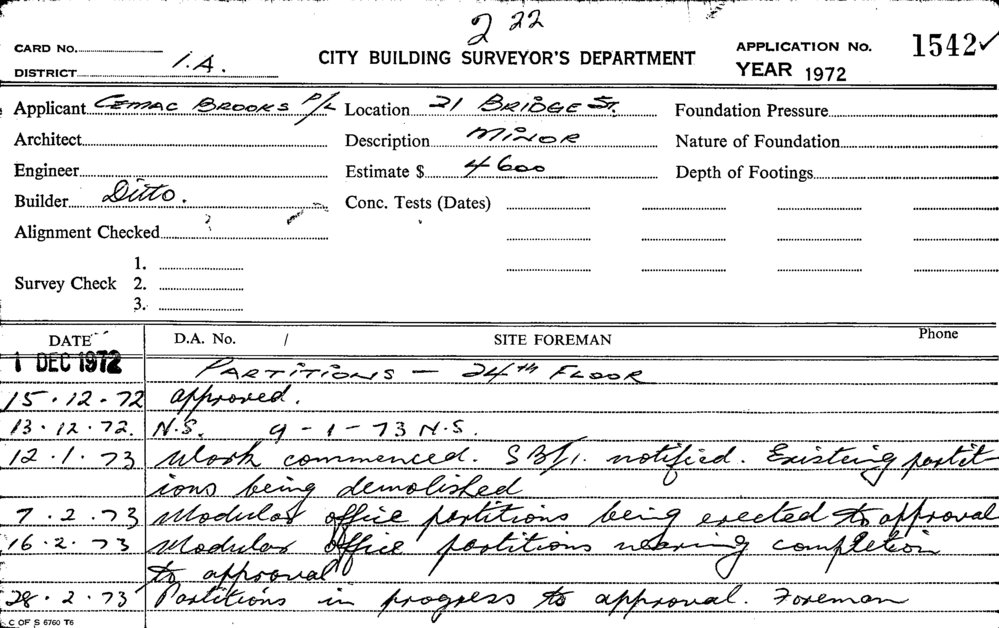 2 22
CARD No.
DISTRICT 1.A.
CITY BUILDING SURVEYOR'S DEPARTMENT
APPLICATION No. 1542 ✓
YEAR 1972
Applicant Cemac Brooks P/L Location 21 Bridge St. Foundation Pressure
Architect Description Minor Nature of Foundation
Engineer Estimate $ 4600 Depth of Footings
Builder Ditto. Conc. Tests (Dates)
Alignment Checked
1.
Survey Check 2.
3.
DATE D.A. No. / SITE FOREMAN Phone
1 DEC 1972 Partitions — 24th Floor
15.12.72 approved.
13.12.72. N.S. 9-1-73 N.S.
12.1.73 Work commenced. SB/1. notified. Existing partit-
ions being demolished
7.2.73 Modular office partitions being erected to approval
16.2.73 Modular office partitions nearing completion
to approval
28.2.73 Partitions in progress to approval. Foreman
C OF S 6760 T6